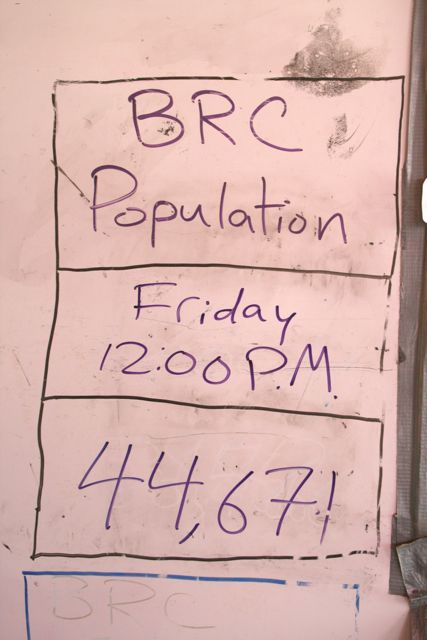 BRC
Population
Friday
12:00 P.M.
44,67!
BRC